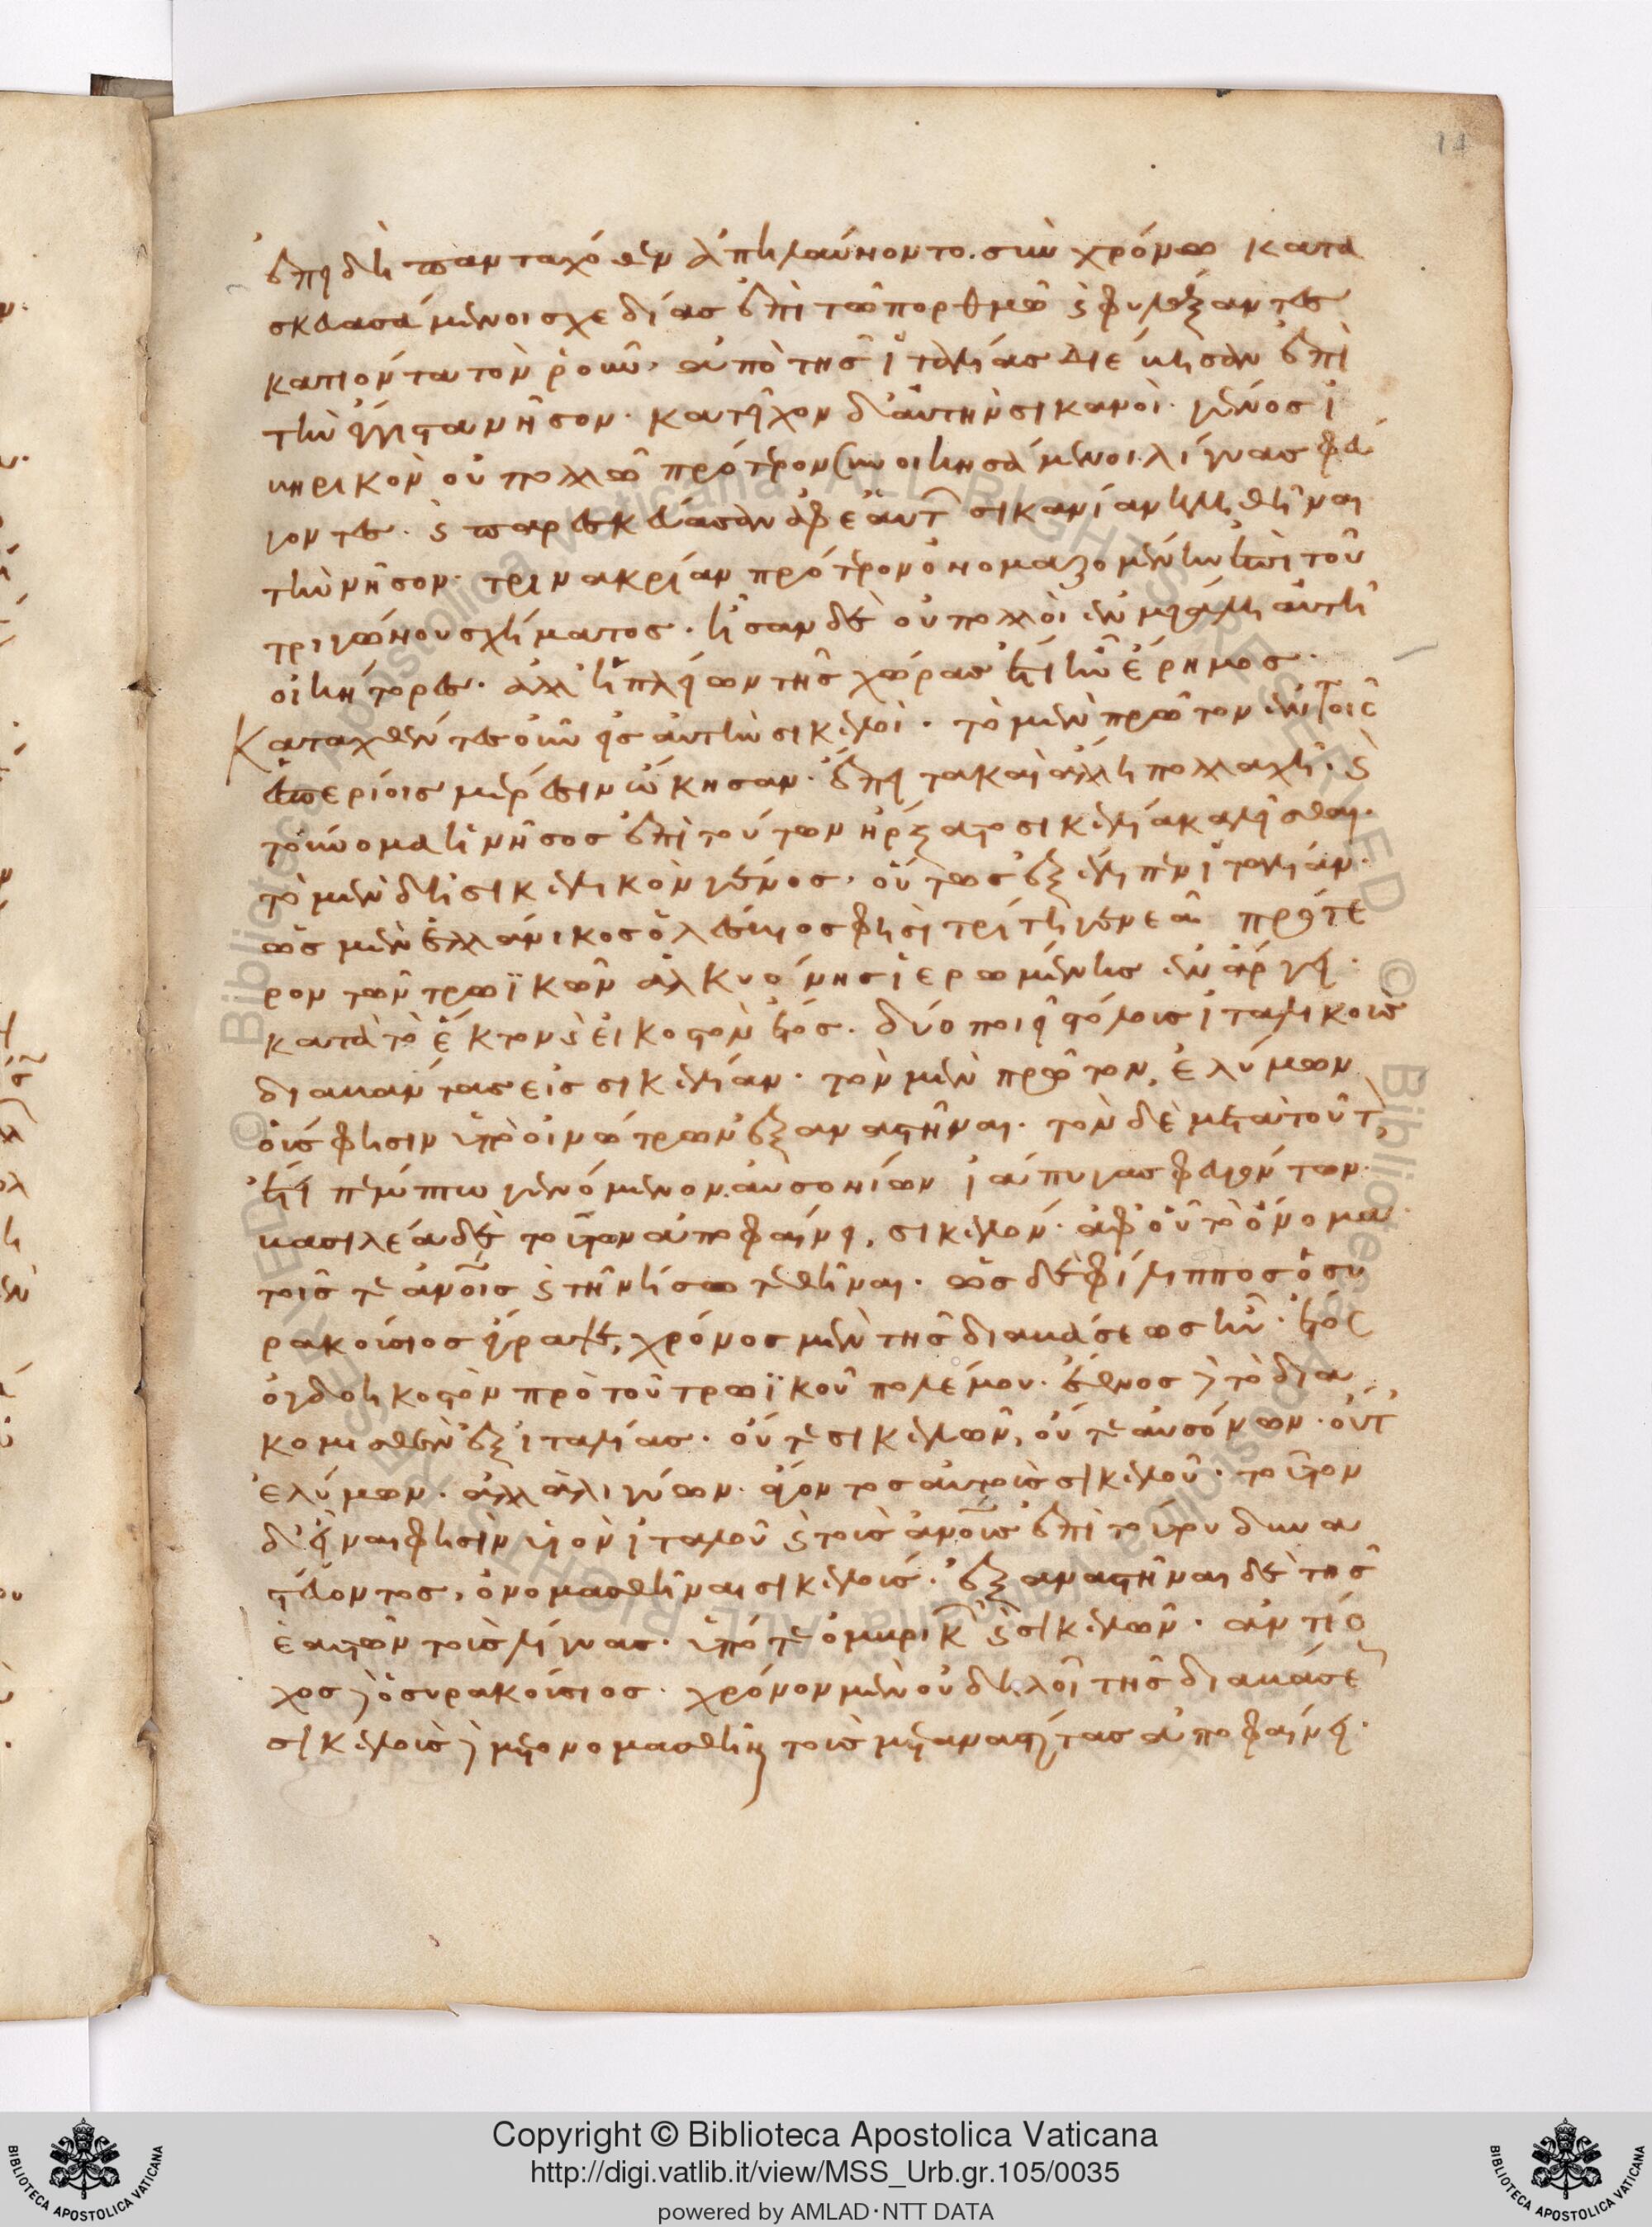 14
ἐπειδὴ πανταχόθεν ἀπηλαύνοντο. σὺν χρόνω κατα
σκευασάμενοι σχεδίας ἐπὶ τῶ πορθμῶ ϛ φυλάξαντες
κατιόντα τὸν ῥοῦν, ἀπὸ τῆς ἰταλίας διέβησαν ἐπὶ
τὴν ἔγγιστα νῆσον. κατεῖχον δ' αὐτὴν σικανοὶ. γένος ἰ
βηρικὸν οὐ πολλῶ πρότερον ἐνοικησάμενοι λίγυας φεύ
γοντες. ϛ παρεσκεύασαν ἀφ' ἑαυτ σικανίαν κληθῆναι
τὴν νῆσον. τρινακρίαν πρότερον ὀνομαζομένην ἐπὶ τοῦ
τριγώνου σχήματος. ἦσαν δὲ οὐ πολλοὶ ἐν μεγάλη αὐτῆ
οἰκήτορες. ἀλλ' ἡ πλείων τῆς χώρας ἔτι ἦν ἔρημος.
Καταχθέντες οὖν εἰς αὐτὴν σικελοὶ. τὸ μὲν πρῶτον ἐν τοῖς
ἑσπερίοις μέρεσιν ὤκησαν. ἔπειτα καὶ ἄλλη πολλαχῆ. ϛ
τοὔνομα ἡ νῆσος ἐπὶ τούτων ἤρξατο σικελία καλεῖσθαι.
τὸ μὲν δὴ σικελικὸν γένος, οὕτως ἐξέλιπεν ἰταλίαν.
ὡς μὲν ἑλλάνικος ὁ λέσβιος φησὶ τρίτη γενεᾶ πρότε
ρον τῶν τρωϊκῶν ἀλκυόνης ἱερωμένης ἐν ἄργει.
κατὰ τὸ ἕκτον ϛ εἰκοστὸν ἔτος. δύο ποιεῖ στόλους ἰταλικοὺς
διαβάντας εἰς σικελίαν. τὸν μὲν πρῶτον, ἐλύμων
οὕς φησιν ὑπὸ οἰνώτρων ἐξαναστῆναι. τὸν δὲ μετὰ τοῦτ
ἔτει πέμπτω γενόμενον. αὐσονίων ἰάπυγας φευγόντων.
βασιλέα δὲ τούτων ἀποφαίνει, σικελόν. ἀφ' οὗ τὸ ὄνομα
τοῖς τε ἀνοις ϛ τῆ νήσω τεθῆναι. ὡς δὲ φίλιππος ὁ συ
ρακούσιος ἔγραψε, χρόνος μὲν τῆς διαβάσεως ἦν. ἔτος
ὀγδοηκοστὸν πρὸ τοῦ τρωϊκοῦ πολέμου. ἔθνος δὲ τὸ δια
κομισθὲν ἐξ ἰταλίας. οὔτε σικελῶν, οὔτε αὐσόνων. οὔτ'
ἐλύμων. ἀλλὰ λιγύων. ἄγοντος αὐτοὺς σικελοῦ. τοῦτον
δ' εἶναι φησὶν υἱὸν ἰταλοῦ ϛ τοὺς ἀνους ἐπὶ τούτου δυνα
στεύοντος, ὀνομασθῆναι σικελούς. ἐξαναστῆναι δὲ τῆς
ἑαυτῶν τοὺς λίγυας. ὑπό τε ὀμβρικ ϛ σικελῶν. ἀντίο
χος δὲ ὁ συρακούσιος. χρόνον μὲν οὐ δηλοῖ τῆς διαβάσε
σικελοὺς δὲ μετονομασθῆν τοὺς μεταναστάντας ἀποφαίνει.
Copyright © Biblioteca Apostolica Vaticana
http://digi.vatlib.it/view/MSS_Urb.gr.105/0035
powered by AMLAD·NTT DATA
BIBLIOTECA APOSTOLICA VATICANA
BIBLIOTECA APOSTOLICA VATICANA